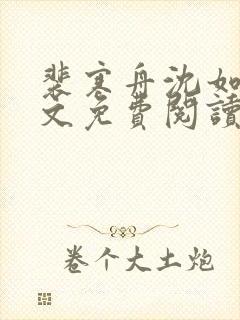 裴寒舟沈如
文免費閱讀
卷个大土炮